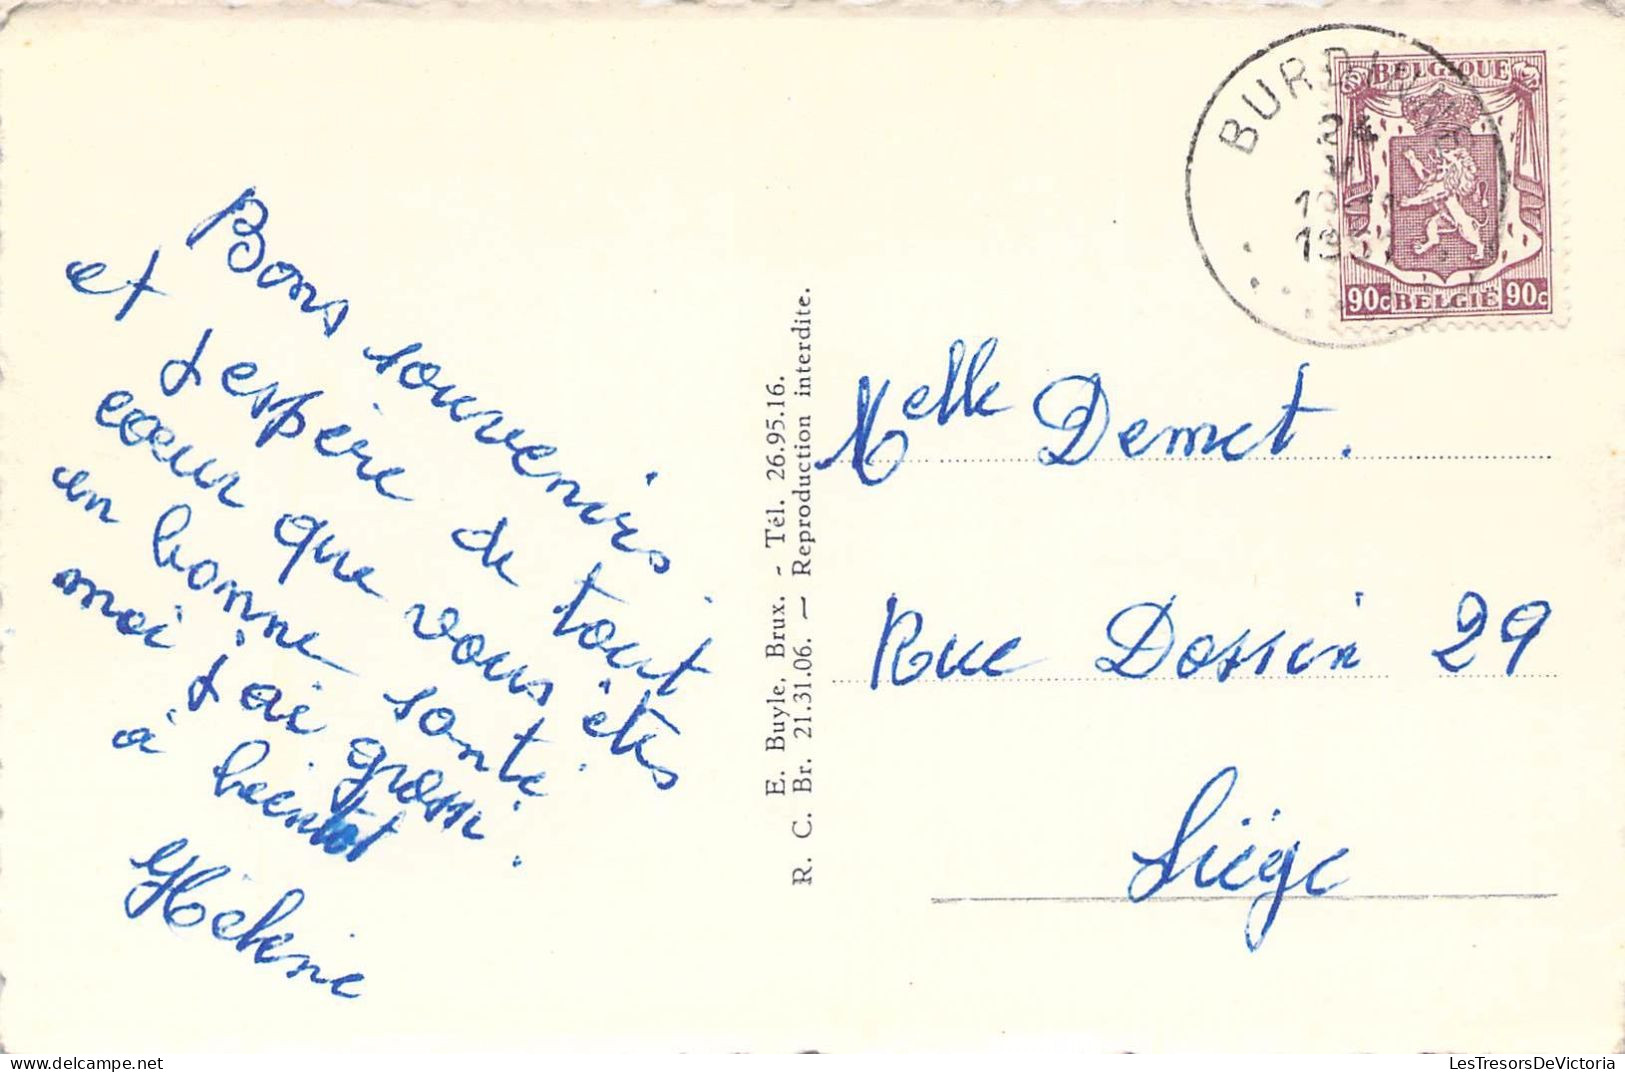 Bons souvenirs
et j'espère de tout
cœur que vous êtes
en bonne santé.
moi j'ai grossi.
à bientot
Hélène
E. Buyle, Brux. - Tél. 26.95.16.
R. C. Br. 21.31.06. — Reproduction interdite.
BURDINNE
24
V
1951
BELGIQUE
90c BELGIË 90c
Melle Demet.
Rue Dossin 29
Liège
LesTresorsDeVictoria
www.delcampe.net